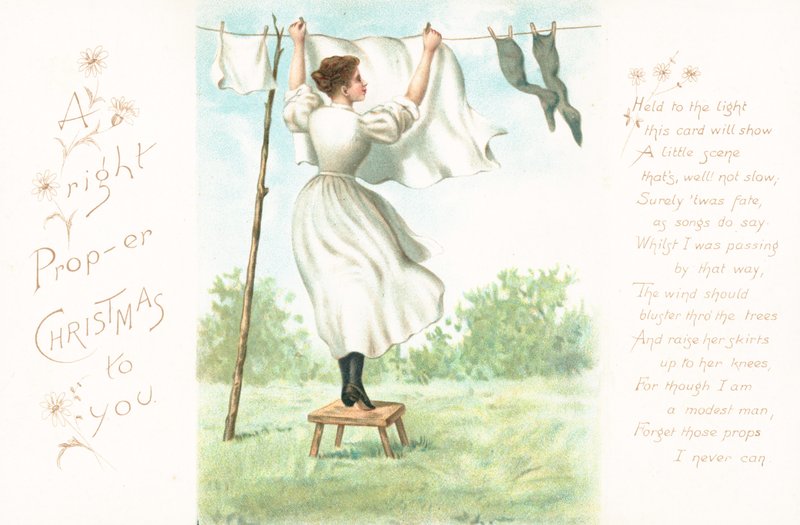 A
right
Prop-er
CHRISTMAS
to
you.
Held to the light
this card will show
A little scene
that's, well! not slow;
Surely 'twas fate,
as songs do say
Whilst I was passing
by that way,
The wind should
bluster thro' the trees
And raise her skirts
up to her knees,
For though I am
a modest man,
Forget those props
I never can.